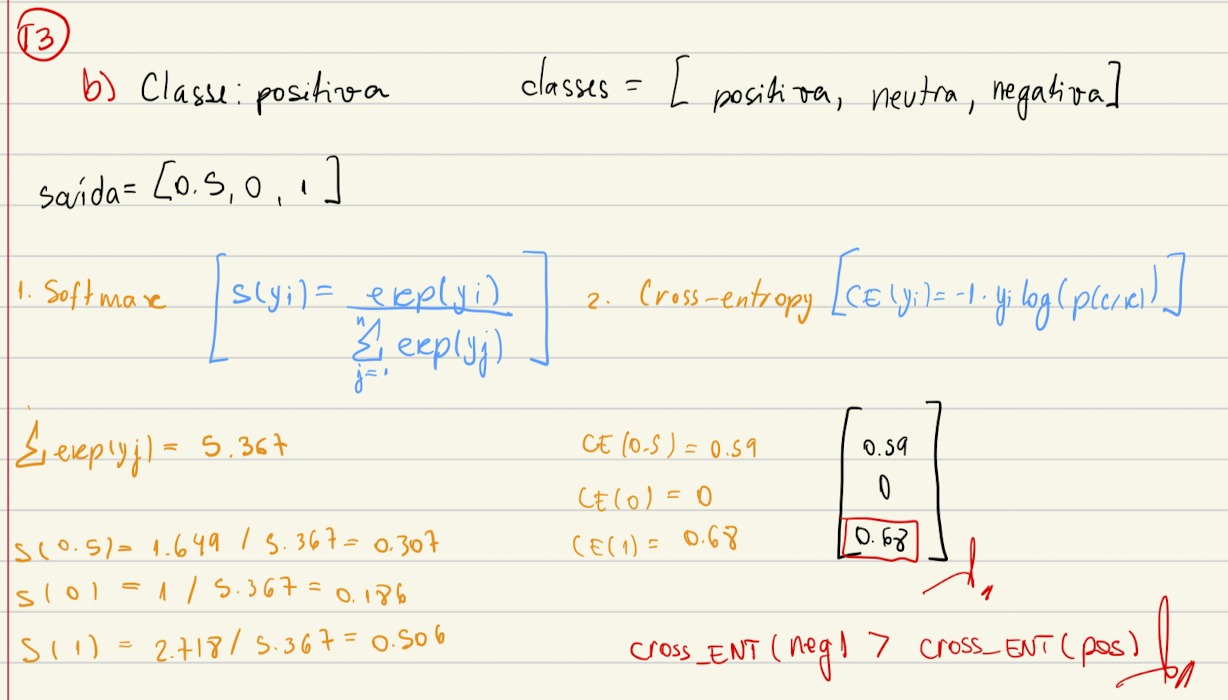 T3
b) Classe: positiva classes = [ positiva, neutra, negativa]
saída= [0.5, 0, 1]
1. Softmax [ s(yi) = exp(yi) / Σ exp(yj) ] n j=1 2. Cross-entropy [CE(yi)= -1. yi log(p(c/x))]
Σ exp(yj) = 5.367
s(0.5)= 1.649 / 5.367= 0.307
s(0) = 1 / 5.367= 0.186
s(1) = 2.718/ 5.367= 0.506
CE(0.5) = 0.59
CE(0) = 0
CE(1) = 0.68
[ 0.59
0
0.68 ]
cross_ENT(neg) > cross_ENT(pos)